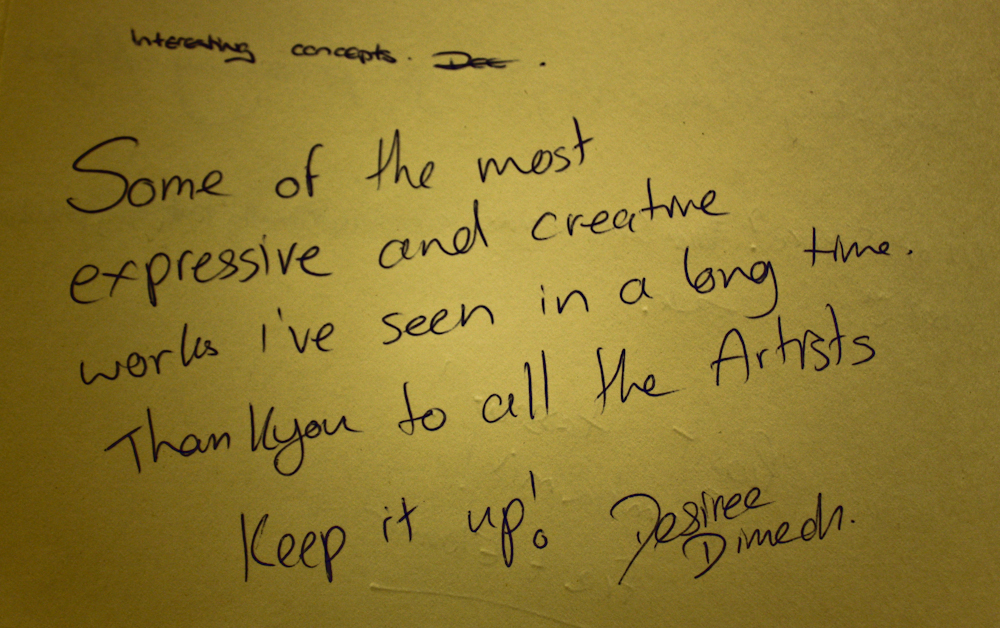 Interesting concepts. Dee.
Some of the most
expressive and creative
works i've seen in a long time.
Thankyou to all the Artists
Keep it up! Desiree
Dimech.